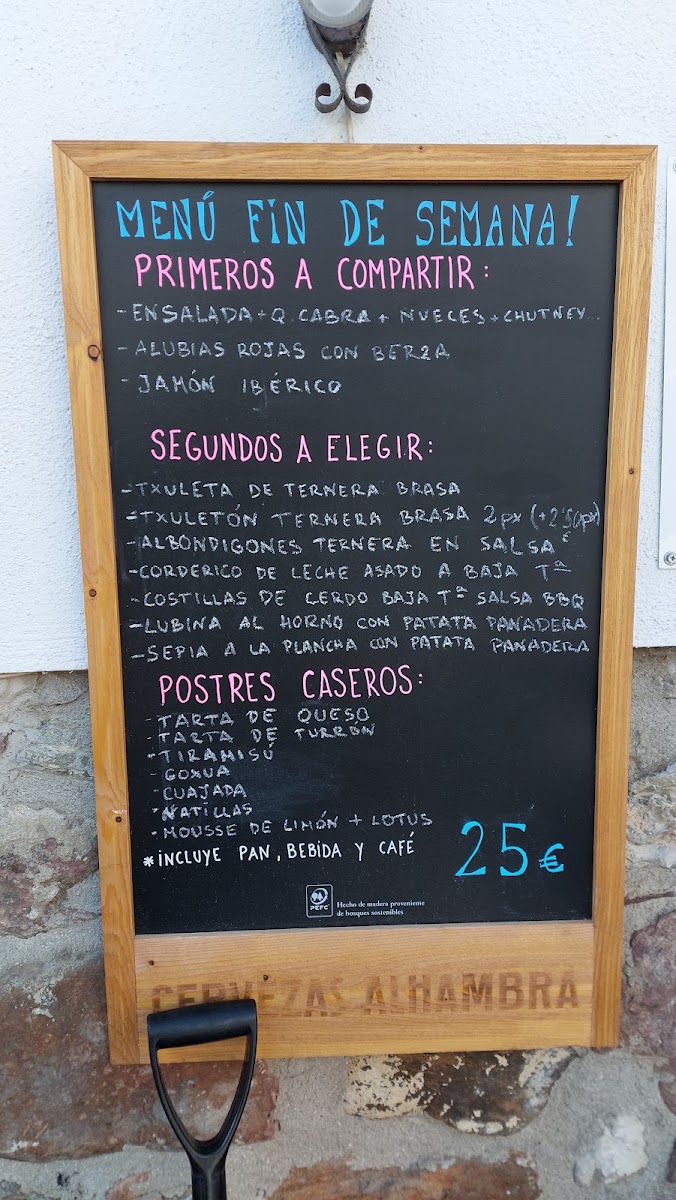 MENÚ FIN DE SEMANA!
PRIMEROS A COMPARTIR:
- ENSALADA + Q. CABRA + NUECES + CHUTNEY...
- ALUBIAS ROJAS CON BERZA
- JAMÓN IBÉRICO
SEGUNDOS A ELEGIR:
- TXULETA DE TERNERA BRASA
- TXULETÓN TERNERA BRASA 2px (+2'50px) €
- ALBONDIGONES TERNERA EN SALSA
- CORDERICO DE LECHE ASADO A BAJA Tª
- COSTILLAS DE CERDO BAJA Tª SALSA BBQ
- LUBINA AL HORNO CON PATATA PANADERA
- SEPIA A LA PLANCHA CON PATATA PANADERA
POSTRES CASEROS:
- TARTA DE QUESO
- TARTA DE TURRÓN
- TIRAMISÚ
- GOXUA
- CUAJADA
- NATILLAS
- MOUSSE DE LIMÓN + LOTUS
* INCLUYE PAN, BEBIDA Y CAFÉ
25€
PEFC
Hecho de madera proveniente
de bosques sostenibles
CERVEZAS ALHAMBRA